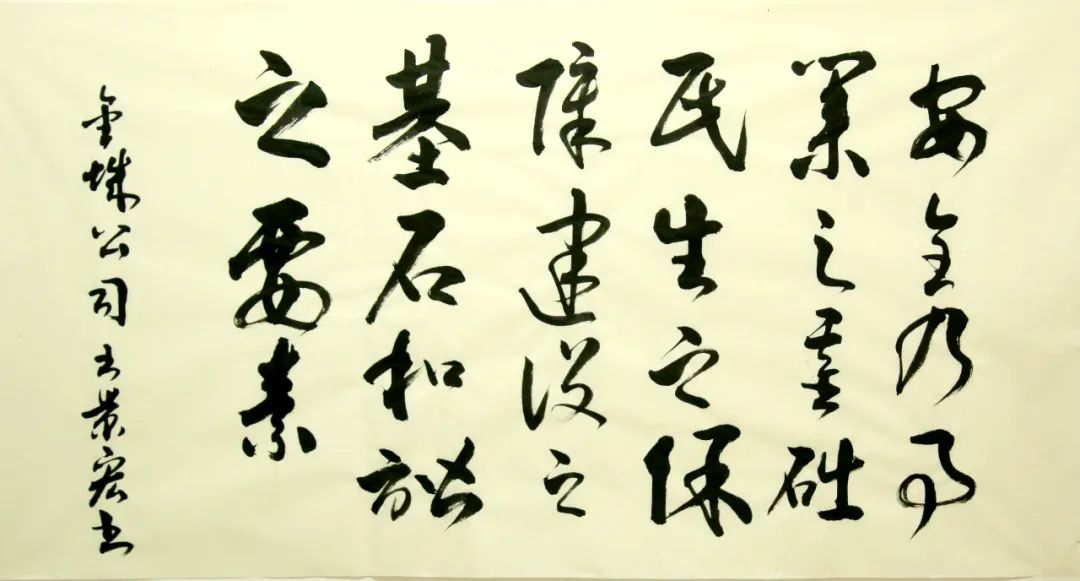 安全乃事
業之基础
民生之保
障建设之
基石和谐
之要素
金城公司 景宏书